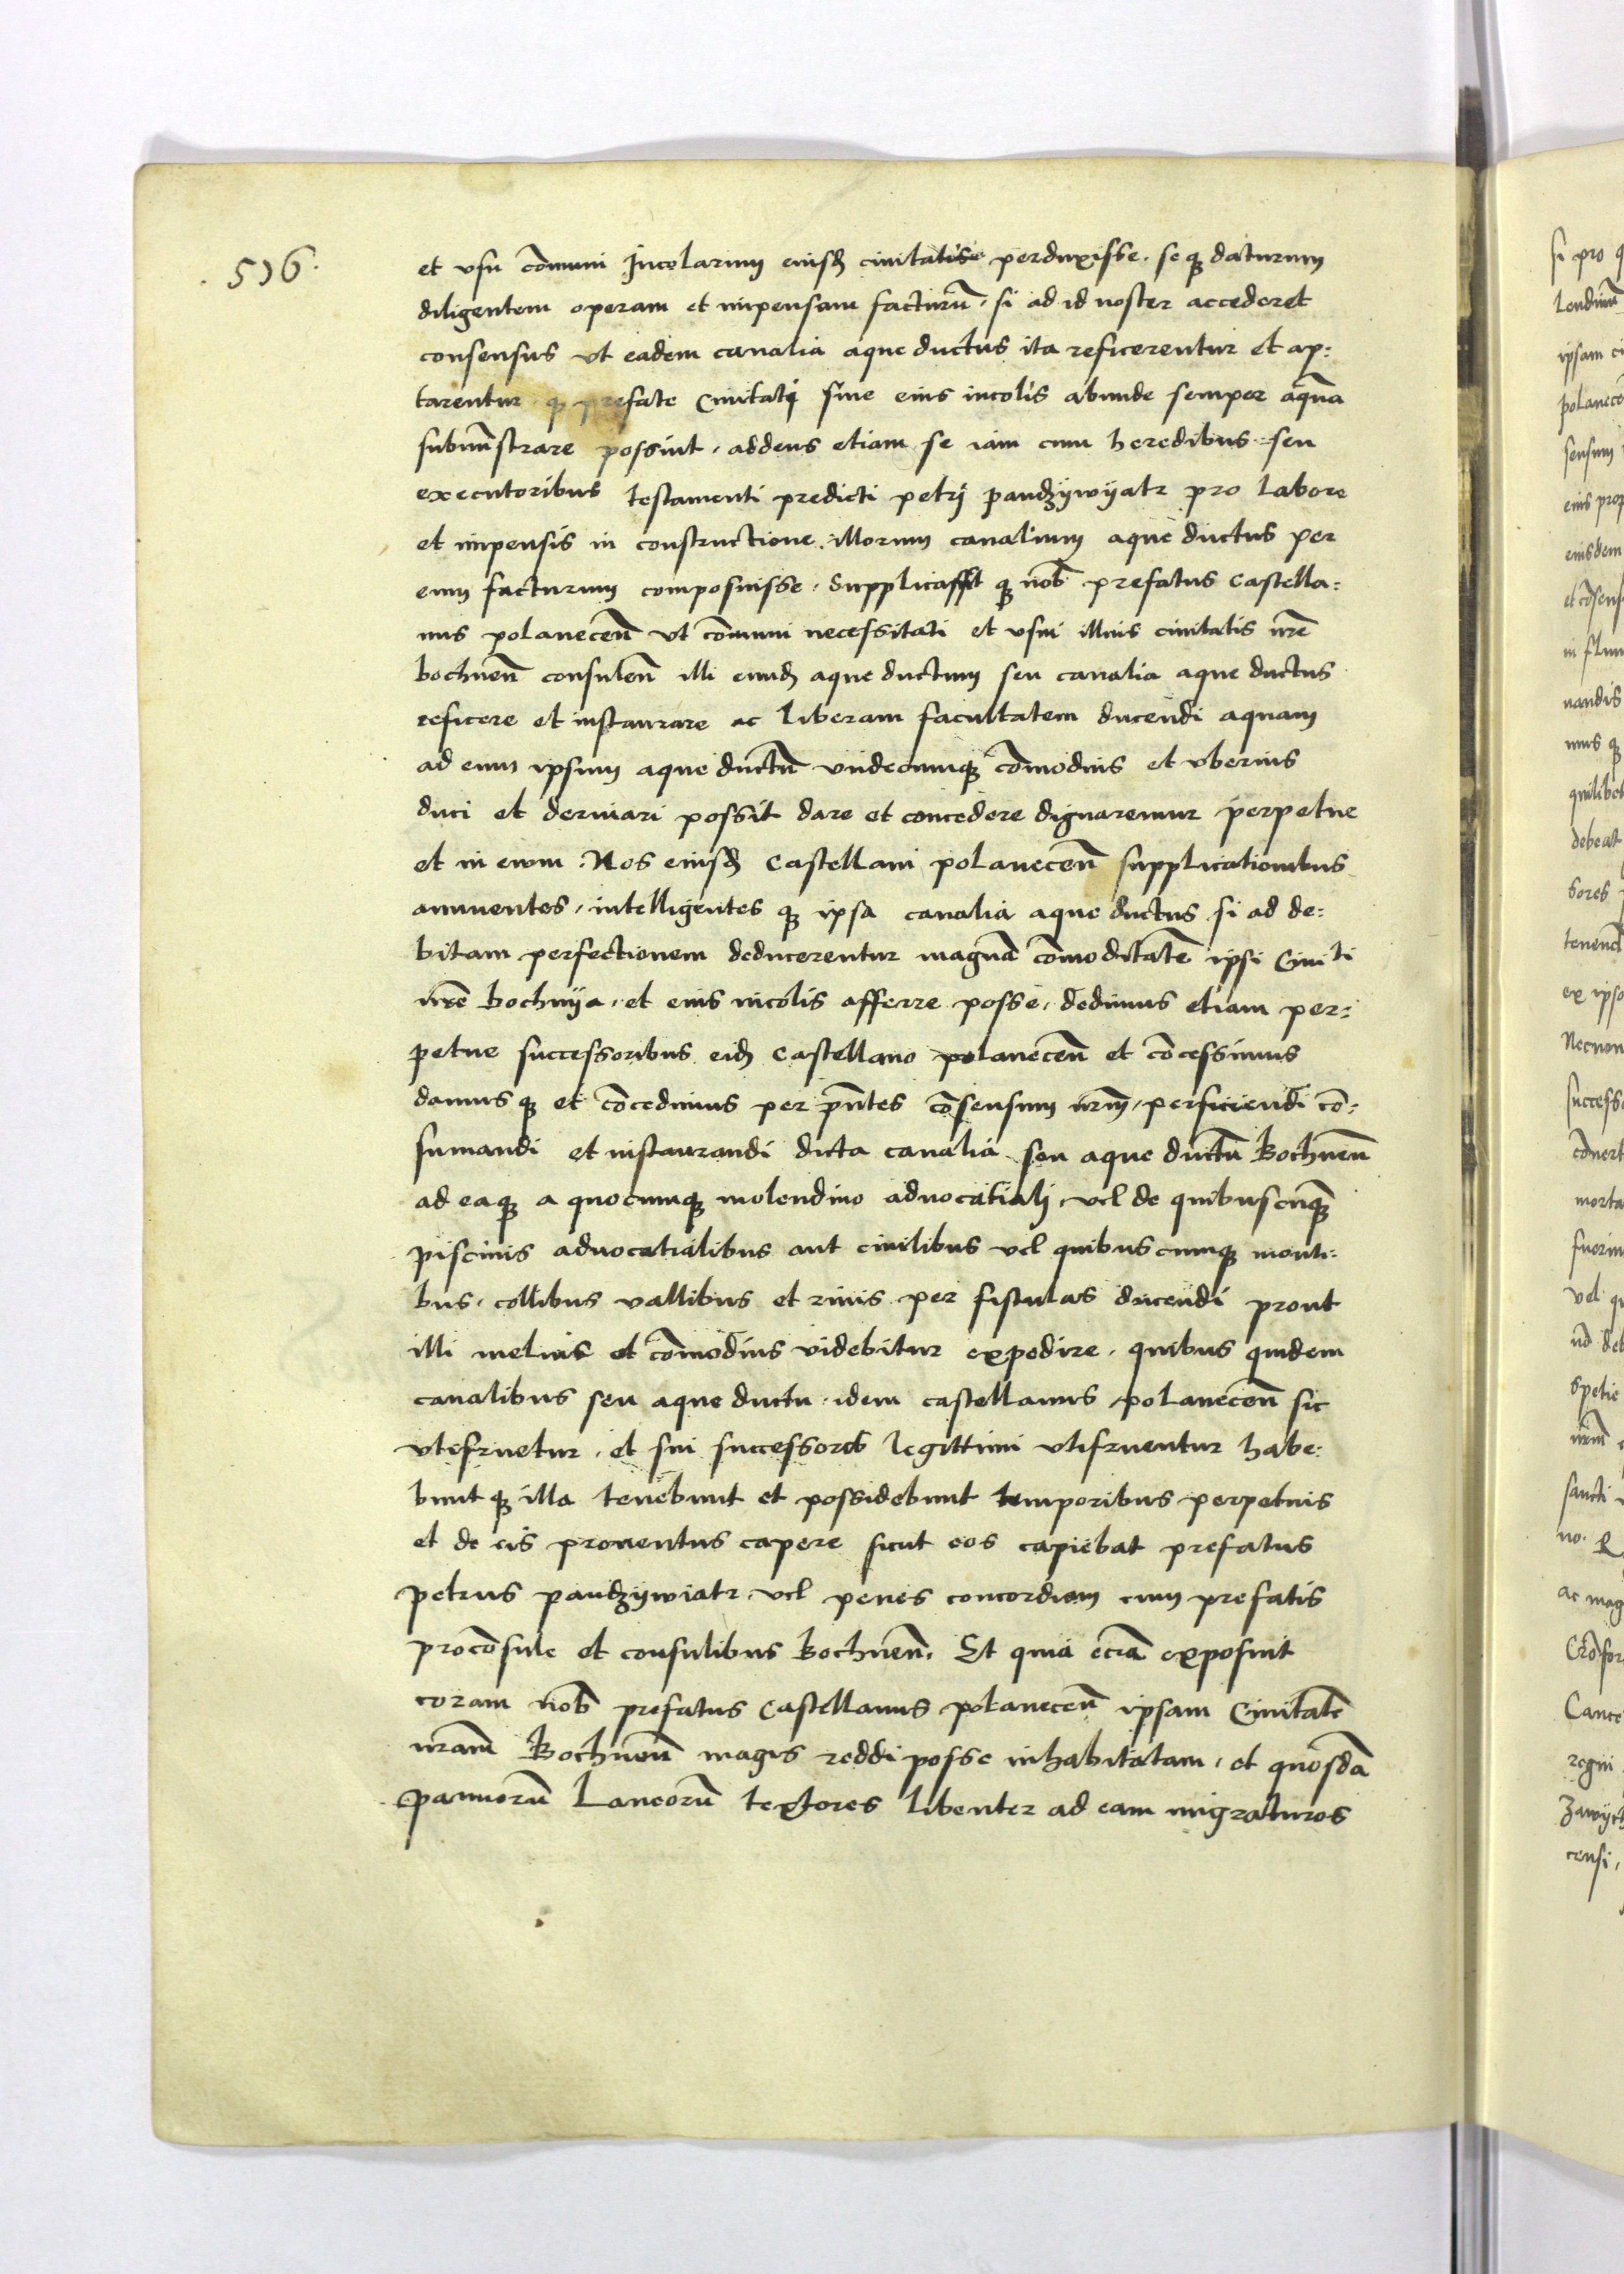 . 516 .
et vsu co͂muni Incolarum eiusd civitatis perduxisse . se q daturum
diligentem operam et impensam facturu͂ . si ad id noster accederet
consensus vt eadem canalia aque ductus ita reficerentur et ap:
tarentur q prefate Civitati sive eius incolis abunde semper aqua͂
submi͂strare possint . addens etiam se iam cum heredibus seu
executoribus testamenti predicti petrj pandzÿwÿatr pro labore
et impensis in constructione . illorum canalium aque ductus per
eum facturum composuisse . Supplicassit q nob͂ prefatus Castella:
nus polanecen͂ vt co͂muni necessitati et vsui illius civitatis nr͂e
bochnen͂ consulen͂ illi eund aque ductum seu canalia aque ductus
reficere et instaurare ac liberam facultatem ducendi aquam
ad eum ipsum aque ductu͂ vndecumq co͂modius et vberius
duci et derivari possit dare et concedere dignaremur perpetue
et in ewm . Nos eiusd Castellani polanecen͂ supplicationibus
annuentes , intelligentes q ipsa canalia aque ductus si ad de:
bitam perfectionem deducerentur magna͂ co͂moditate͂ ipsi Civiti
nr͂e Bochnÿa , et eius incolis afferre posse , dedimus etiam per:
petue successoribus eid Castellano polanecen͂ et co͂cessimus
damus q et co͂cedimus per pn͂tes co͂sensum nrm͂ , perficiendi co͂:
sumandi et instaurandi dicta canalia seu aque ductu͂ Bochnen͂
ad eaq a quocumq molendino advocatialj vel de quibuscu͂q
piscinis advocatialibus aut civilibus vel quibuscumq monti:
bus , collibus vallibus et rivis per fistulas ducendi prout
illi melius et co͂modius videbitur expedire . quibus quidem
canalibus seu aque ductu . idem castellanus polanecen͂ sic
vtefruetur . et sui successoreb legittimi vtifruentur habe:
bunt q illa tenebunt et possidebunt temporibus perpetuis
et de eis proventus capere sicut eos capiebat prefatus
petrus pandzÿwiatr vel penes concordiam cum prefatis
proco͂sule et consulibus Bochnen͂ . Et quia ecia͂ exposuit
coram nob͂ prefatus Castellanus polanecen͂ ipsam Civitate͂
nram͂ Bochnen͂ magis reddi posse inhabitatam , et quosda͂
pannoru͂ Laneoru͂ textores libenter ad eam migraturos
si pro
ipsam
eiusdem
debeat
tenend
ex ipso
Necnon
Cance
regni
censi,